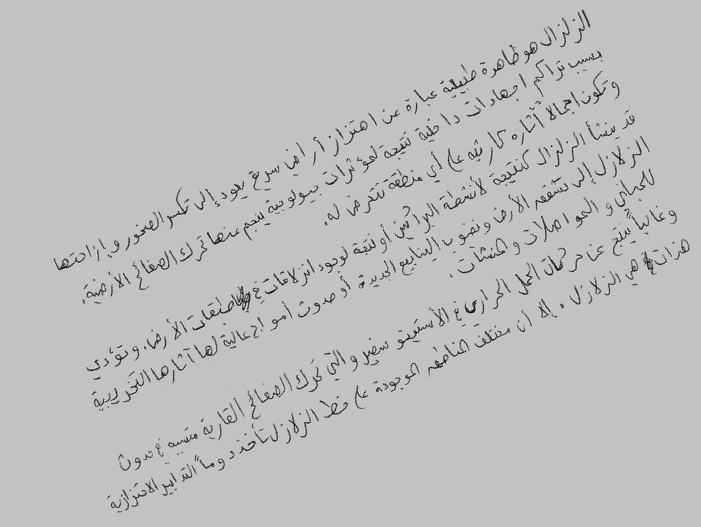 الزلزال هو ظاهرة طبيعية عبارة عن اهتزاز أرضي سريع يعود إلى تكسر الصخور وإزاحتها
بسبب تراكم اجهادات داخلية نتيجة لمؤثرات جيولوجية ينجم عنها تحرك الصفائح الأرضية.
وتكون اجمالا آثاره كارثية على أي منطقة تتعرض له.
قد ينشأ الزلزال كنتيجة لأنشطة البراكين أو نتيجة لوجود انزلاقات في طبقات الأرض. وتؤدي
الزلازل إلى تشقق الأرض ونضوب الينابيع الجديدة أو حدوث أمواج عالية لها آثارها التخريبية
للمباني و المواصلات و المنشآت.
وغالباً ينتج عن حركات الحمل الحراري في الأستينوسفير والتي تحرك الصفائح القارية متسببة في حدوث
هزات هي الزلازل. إلا أن مختلف المناطق الموجودة على خط الزلازل تأخذ دوماً التدابير الاحترازية